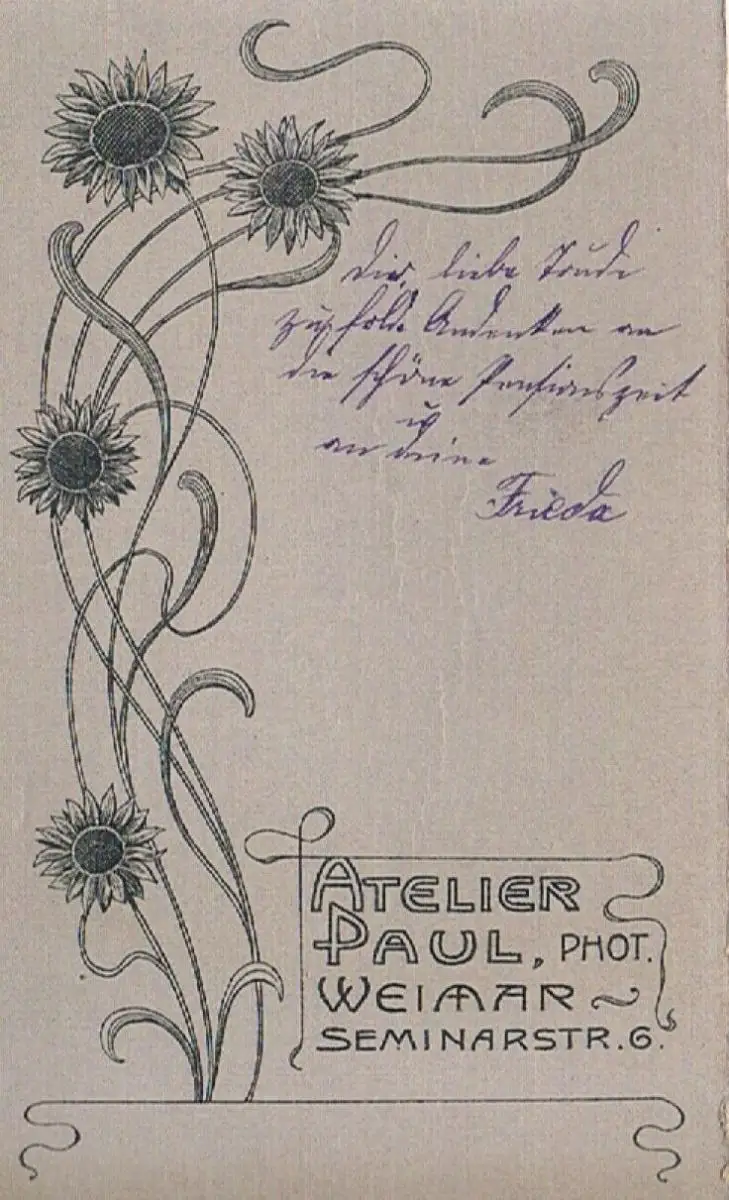 Dir, liebe Trude
zum holde Andenken an
die schöne Pensionszeit
u
an deine
Frieda
ATELIER
PAUL, PHOT.
WEIMAR ~
SEMINARSTR. 6.